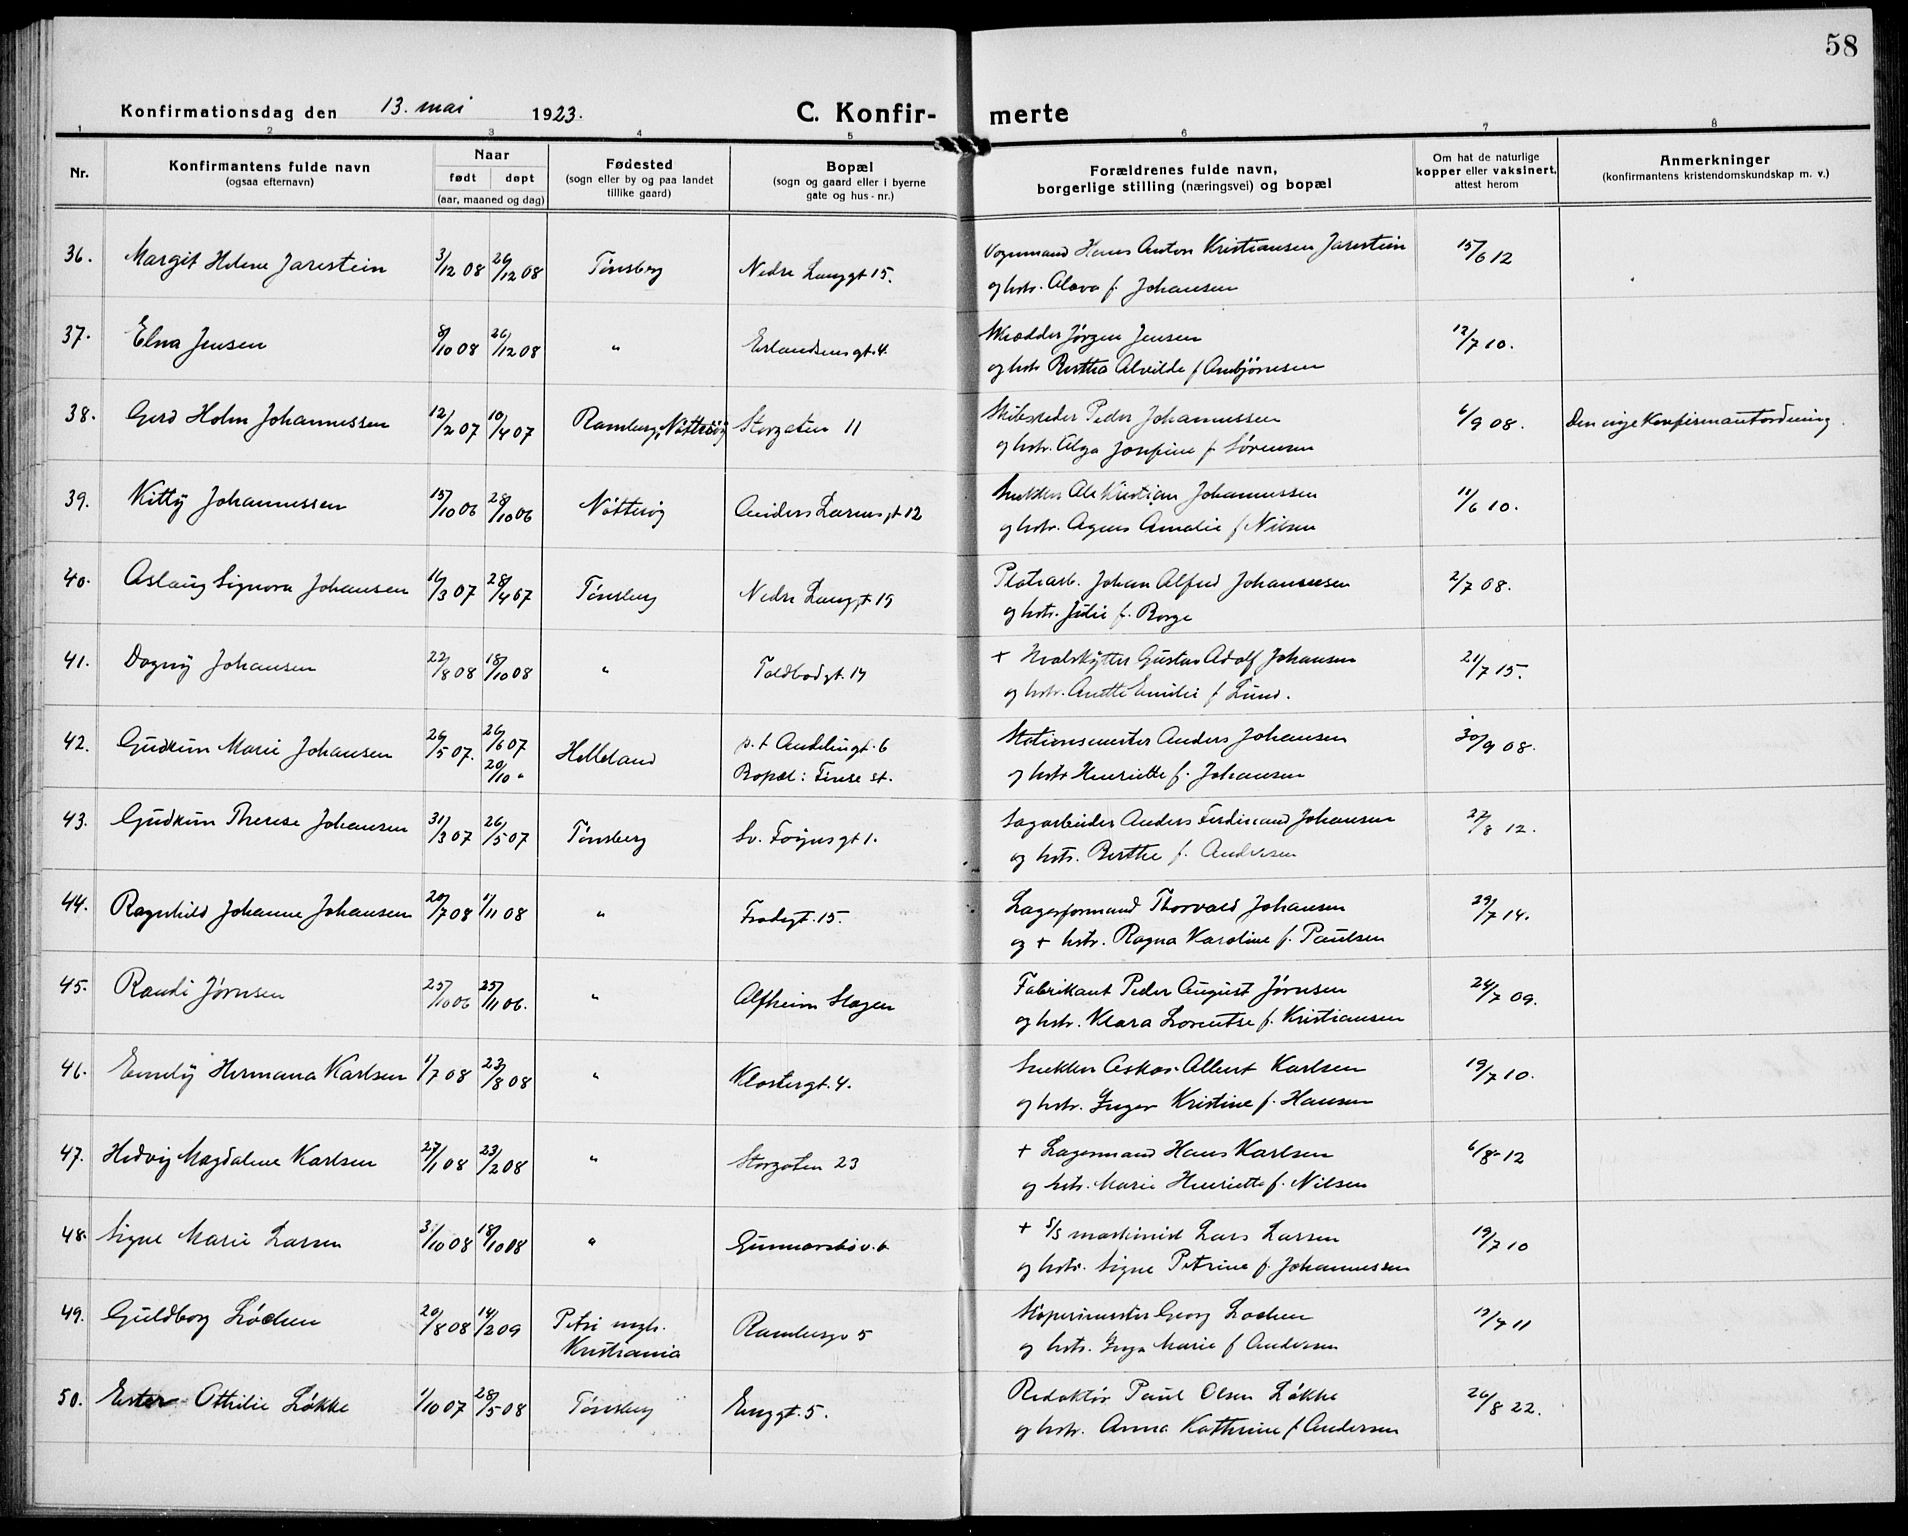 58
Konfirmationsdag den 13. mai 1923. C. Konfir- merte
1 2 3 4 5 6 7 8
Nr.
Konfirmantens fulde navn
(ogsaa efternavn)
Naar
født døpt
(aar, maaned og dag)
Fødested
(sogn eller by og paa landet
tillike gaard)
Bopæl
(sogn og gaard eller i byerne
gate og hus-nr.)
Forældrenes fulde navn,
borgerlige stilling (næringsvei) og bopæl
Om hat de naturlige
kopper eller vaksinert,
attest herom
Anmerkninger
(konfirmantens kristendomskundskap m. v.)
36. Margit Helene Jarestein 3/12 08 26/12 08 Tønsberg Nedre Langgt 15. Vognmand Hans Anton Kristiansen Jarestein 15/6 12
og hstr. Alova f. Johansen
37. Elna Jensen 8/10 08 26/12 08 " Erlandsensgt. 4. Skrædder Jørgen Jensen 12/7 10.
og hstr Bertha Alvilde f Arnbjørnsen
38. Gerd Holm Johannessen 12/2 07 10/4 07 Ramberg, Nøtterøy Storgaten 11 Skibsreder Peder Johannessen 6/9 08. Den nye Konfirmantordning.
og hstr. Olga Josefine f. Sørensen
39. Kitty Johannessen 15/10 06 28/10 06 Nøtterøy Anders Larsens gt 12 Snekker Ole Kristian Johannessen 11/6 10.
og hstr. Agnes Amalie f Nilsen
40. Aslaug Signora Johansen 16/3 07 28/4 07 Tønsberg Nedre Langgt 19 Platearb. Johan Alfred Johannesen 2/7 08.
og hstr. Julie f. Borge
41. Dagny Johansen 22/8 08 18/10 08 " Toldbodgt. 14 + Hvalskytter Gustav Adolf Johansen 21/7 15.
og hstr. Anette Emilie f Lund.
42. Gudrun Marie Johansen 26/5 07. 26/6 07 Helleland p.t Andelingt. 6 Stationsmester Anders Johansen 30/9 08.
20/10 " Bopæl: Finse st. og hstr Henriette f. Johansen
43. Gudrun Therese Johansen 31/3 07 26/5 07 Tønsberg Sv. Foynsgt 1. Sagarbeider Anders Ferdinand Johansen 27/8 12.
og hstr. Berthe f. Andersen
44. Ragnhild Johanne Johansen 20/7 08 1/11 08 " Frodegt. 15. Lagerformand Thorvald Johansen 29/7 14.
og + hstr. Ragna Karoline f. Paulsen
45. Randi Jørnsen 25/10 06 25/11 06. " Alfheim Slagen Fabrikant Peder August Jørnsen 24/7 09.
og hstr. Klara Lorentse f. Kristiansen
46. Emely Hermana Karlsen 1/7 08 23/8 08 " Klostergt. 4. Snekker Oskar Albert Karlsen 19/7 10.
og hstr. Inger Kristine f. Hansen
47. Hedvig Magdalene Karlsen 27/1 08 23/2 08 " Storgaten 23 + Lagermand Hans Karlsen 6/8 12
og hstr. Marie Henriette f. Nilsen
48. Signe Marie Larsen 3/10 08 18/10 08 " Gunnarsbøv. 6 + S/S maskinist Lars Larsen 19/7 10
og hstr. Signe Petrine f. Johannessen
49. Guldborg Lochen 20/8 08 14/2 09 Petri mgh. Rambergv 5 Skipsmester Georg Lochen 12/7 11
Kristiania og hstr. Inga Marie f Andersen
50. Ester Othilie Løkke 1/10 07 28/5 08 Tønsberg Enggt. 5. Redaktør Paul Olsen Løkke 26/8 22.
og hstr. Anna Kathrine f Andersen